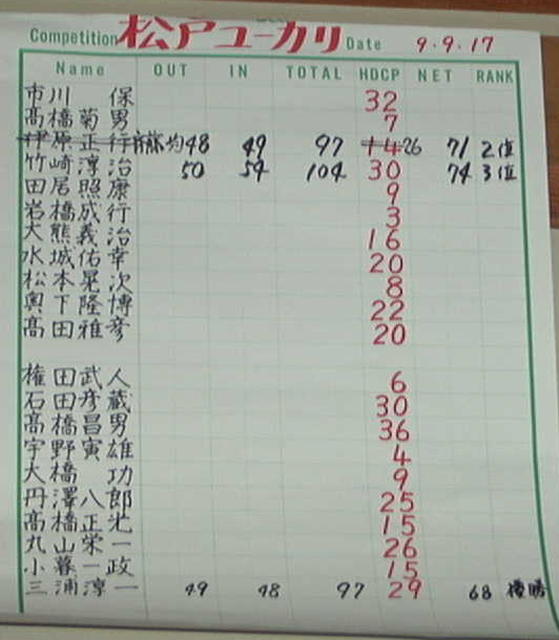 Competition 松戸ユーカリ Date 9.9.17
Name OUT IN TOTAL HDCP NET RANK
市川 保 32
髙橋菊男 7
伊原正行 斉藤均 48 49 97 14 26 71 2位
竹崎淳治 50 54 104 30 74 3位
田居照康 9
岩橋成行 3
大熊義治 16
水城佑幸 20
松本晃次 8
奥下隆博 22
髙田雅彦 20
権田武人 6
石田彦蔵 30
髙橋昌男 36
宇野寅雄 4
大橋 功 9
丹澤八郎 25
髙橋正光 15
丸山栄一 26
小暮一政 15
三浦淳一 49 48 97 29 68 優勝